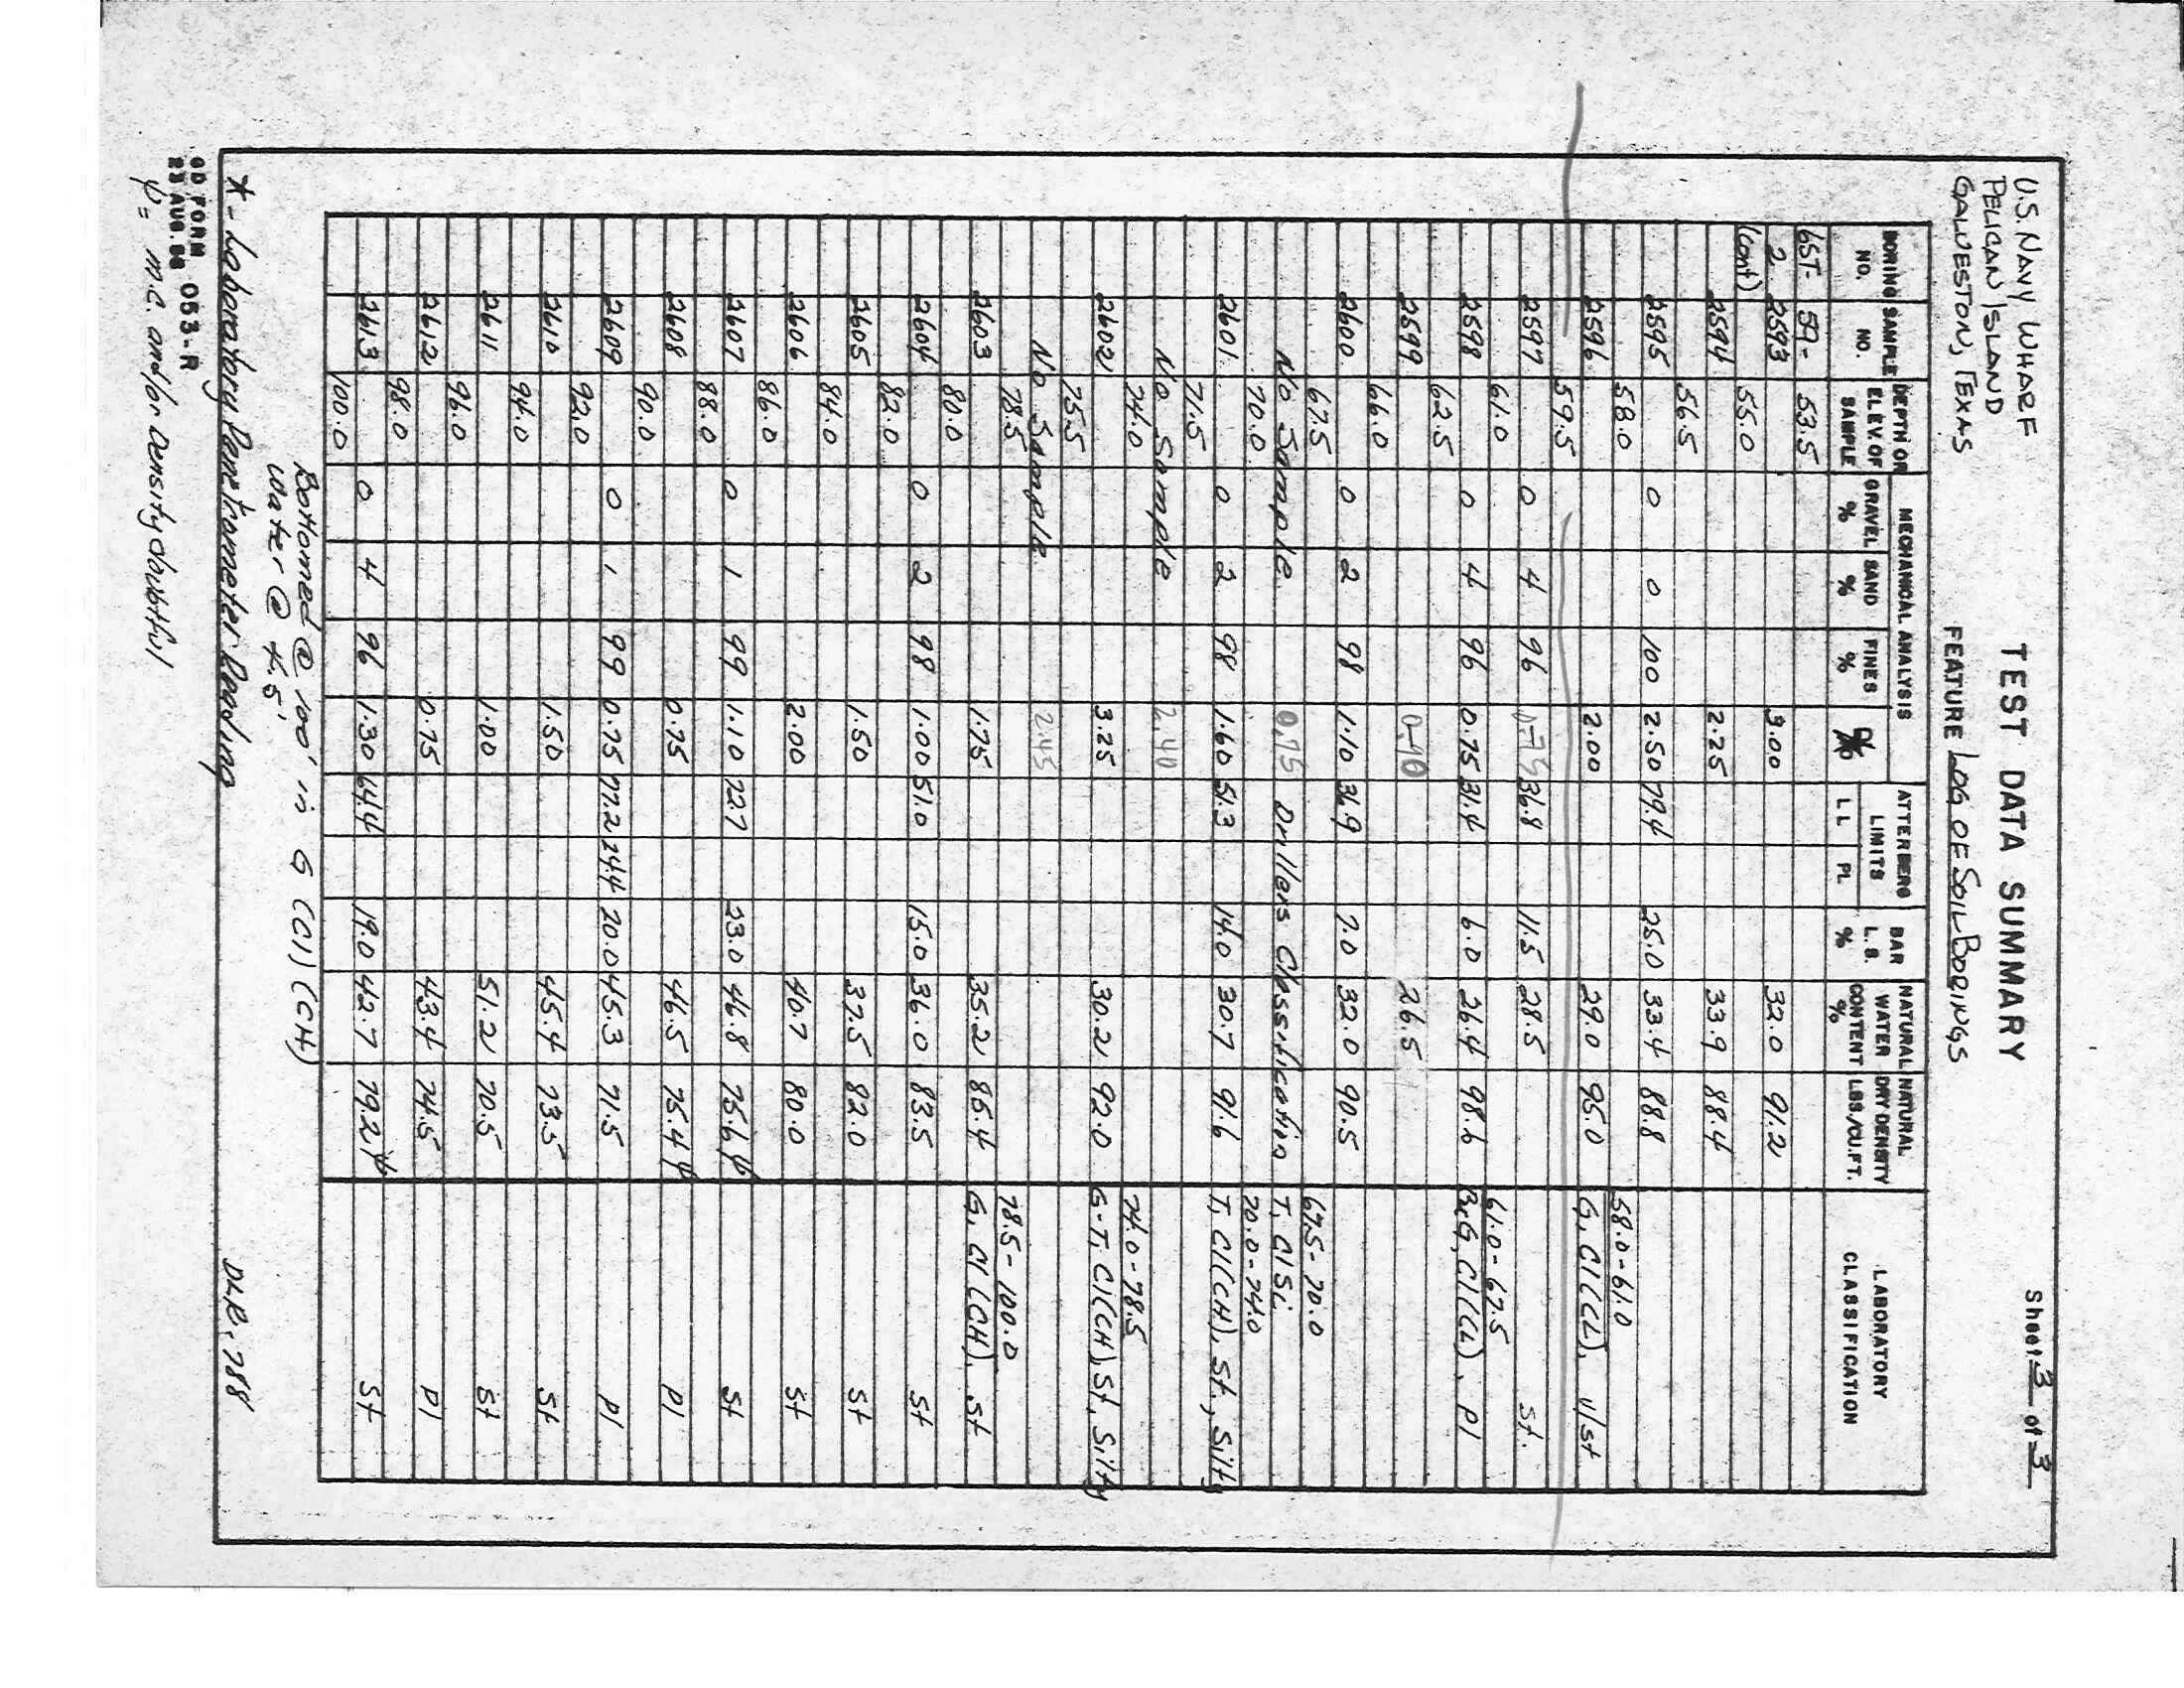 U.S. NAVY WHARF
PELICAN ISLAND
GALVESTON, TEXAS
TEST DATA SUMMARY
FEATURE LOG OF SOIL BORINGS
Sheet 3 of 3
BORING NO. SAMPLE NO. DEPTH OR ELEV. OF SAMPLE MECHANICAL ANALYSIS GRAVEL % SAND % FINES % ATTERBERG LIMITS LL PL BAR L.S. % NATURAL WATER CONTENT % NATURAL DRY DENSITY LBS./CU.FT. LABORATORY CLASSIFICATION
6ST- 59- 53.5
2 2593 3.00 32.0 91.2
(cont) 55.0
2594 2.25 33.9 88.4
56.5
2595 0 0 100 2.50 79.4 25.0 33.4 88.8
58.0 58.0-61.0
2596 2.00 29.0 95.0 G, Cl(CL), v/st
59.5
2597 0 4 96 0.75 36.8 11.5 28.5 st.
61.0 61.0-67.5
2598 0 4 96 0.75 31.4 6.0 26.4 98.6 B,G, Cl(CL), pl
62.5
2599 0.40 26.5
66.0
2600 0 2 98 1.10 36.9 7.0 32.0 90.5
67.5 67.5-70.0
No Sample 0.75 Drillers Classification T, Cl Si
70.0 70.0-74.0
2601 0 2 98 1.60 51.3 14.0 30.7 91.6 T, Cl(CH), st, Silty
71.5
No Sample 2.40
74.0 74.0-78.5
2602 3.25 30.2 92.0 G-T, Cl(CH) St, Silty
75.5
No Sample 2.45
78.5 78.5-100.0
2603 1.75 35.2 86.4 G, Cl (CH), st
80.0
2604 0 2 98 1.00 51.0 15.0 36.0 83.5 st
82.0
2605 1.50 37.5 82.0 st
84.0
2606 2.00 40.7 80.0 st
86.0
2607 0 1 99 1.10 72.7 23.0 46.8 75.6 ψ st
88.0
2608 0.75 46.5 75.4 ψ pl
90.0
2609 0 1 99 0.75 77.2 24.4 20.0 45.3 71.5 pl
92.0
2610 1.50 45.4 73.5 st
94.0
2611 1.00 51.2 70.5 st
96.0
2612 0.75 43.4 74.5 pl
98.0
2613 0 4 96 1.30 64.4 19.0 42.7 79.2 ψ st
100.0
Bottomed @ 100' in G (Cl) (CH)
Water @ 4.5'
* - Laboratory Penetrometer Reading
GD FORM 053-R
23 AUG.
ψ = m.c. and/or density doubtful